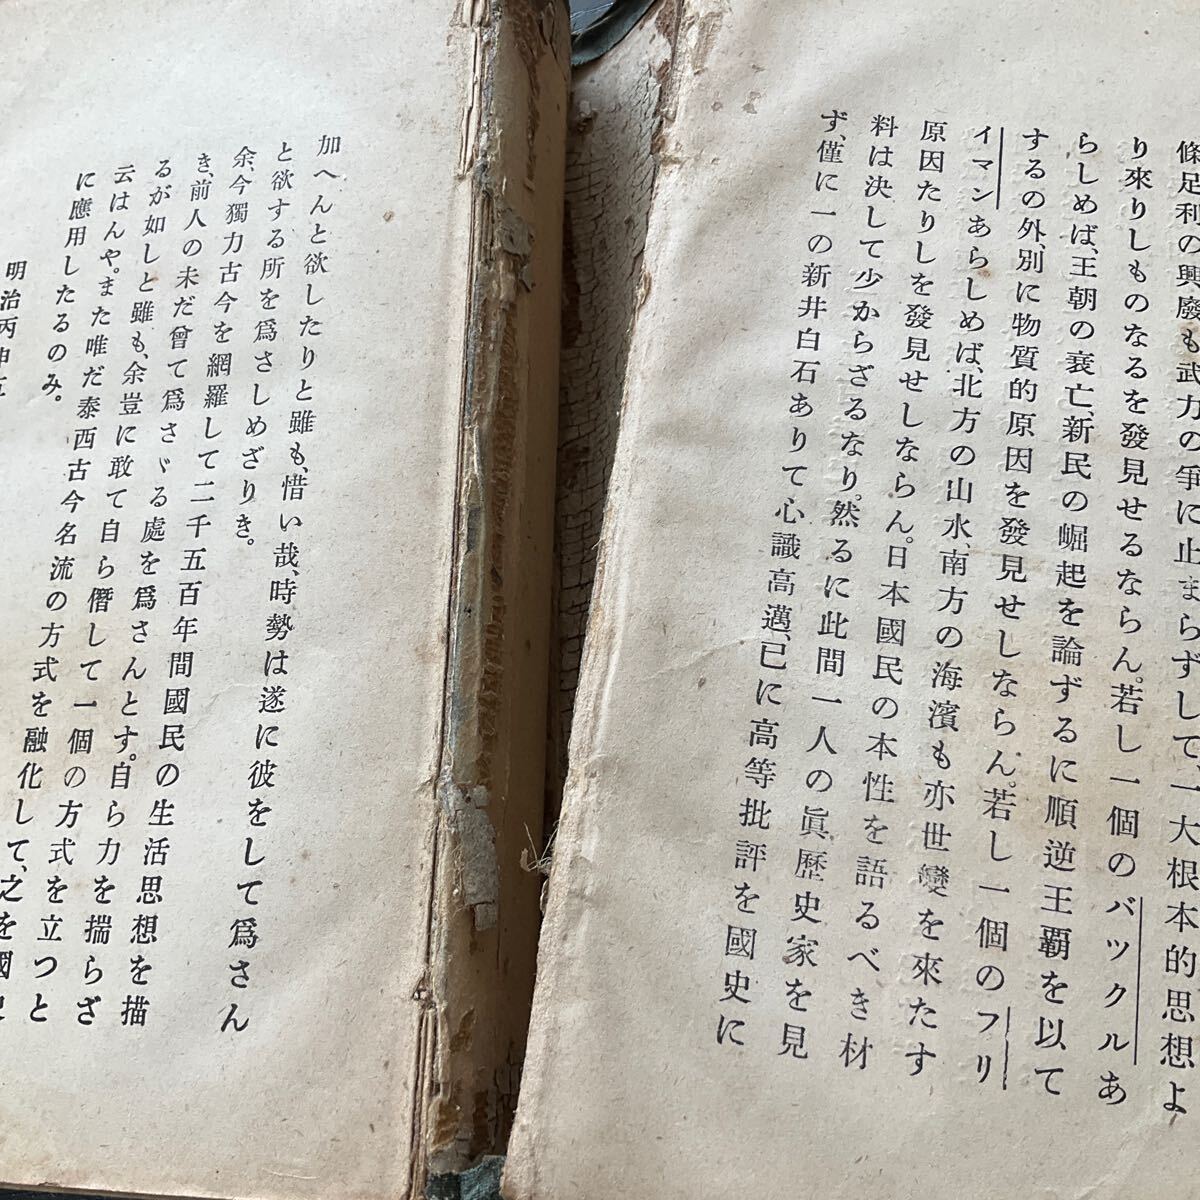 條足利の興廢も武力の爭に止まらずして、一大根本的思想よ
り來りしものなるを發見せるならん。若し一個のバツクルあ
らしめば、王朝の衰亡、新民の崛起を論ずるに順逆王覇を以て
するの外、別に物質的原因を發見せしならん。若し一個のフリ
イマンあらしめば、北方の山水、南方の海濱も亦世變を來たす
原因たりしを發見せしならん。日本國民の本性を語るべき材
料は決して少からざるなり。然るに此間一人の眞歷史家を見
ず、僅に一の新井白石ありて心識高邁、已に高等批評を國史に
加へんと欲したりと雖も、惜い哉、時勢は遂に彼をして爲さん
と欲する所を爲さしめざりき。
余、今獨力古今を網羅して二千五百年間國民の生活思想を描
き、前人の未だ曾て爲さゞる處を爲さんとす。自ら力を揣らざ
るが如しと雖も、余豈に敢て自ら僭して一個の方式を立つと
云はんや。また唯だ泰西古今名流の方式を融化して、之を國史
に應用したるのみ。
明治丙申